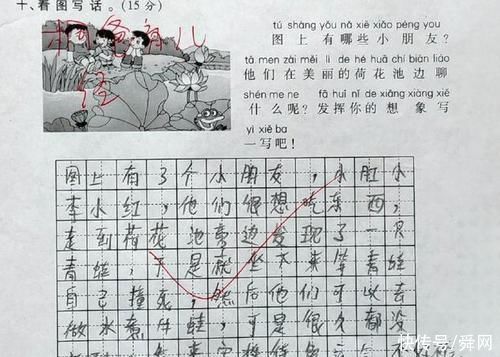 十、看图写话。(15分)
tú shàng yǒu nǎ xiē xiǎo péng you
图上有哪些小朋友?
tā men zài měi lì de hé huā chí biān liáo
他们在美丽的荷花池边聊
shén me ne fā huī nǐ de xiǎng xiàng xiě
什么呢?发挥你的想象写
yì xiě ba
一写吧!
图上有了个小朋友,小肛小
李小红,他们很想吃东西,
走到荷花池旁边发现了一只
青蛙,于是就坐下来等青蛙
自己撞死,然后他们可以去
做水煮牛蛙,可是很久都没
快传号/舜网